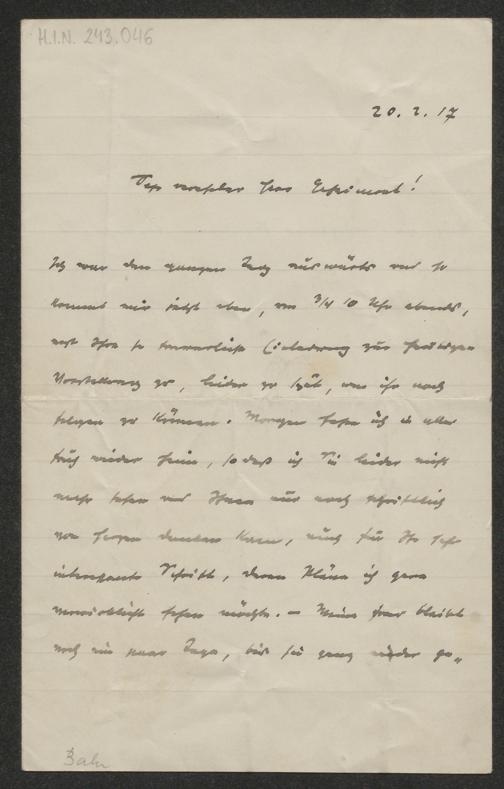 H.I.N. 243.046
20. 2. 17
Sehr verehrter Herr
Ich war den ganzen Tag auswärts und so
kommt mir jetzt eben, um 3/4 10 Uhr abends,
erst Ihre so freundliche Einladung zur heutigen
Vorstellung zu, leider zu spät, um ihr noch
folgen zu können. Morgen fahre ich in aller
früh wieder heim, so daß ich Sie leider nicht
mehr sehen und Ihnen nur noch schriftlich
von Herzen danken kann, auch für Ihre sehr
interessante Schrift, deren Pläne ich gern
verwirklicht sehen möchte. – Meine Frau bleibt
noch ein paar Tage, bis sie ganz wieder ge„
Bahr